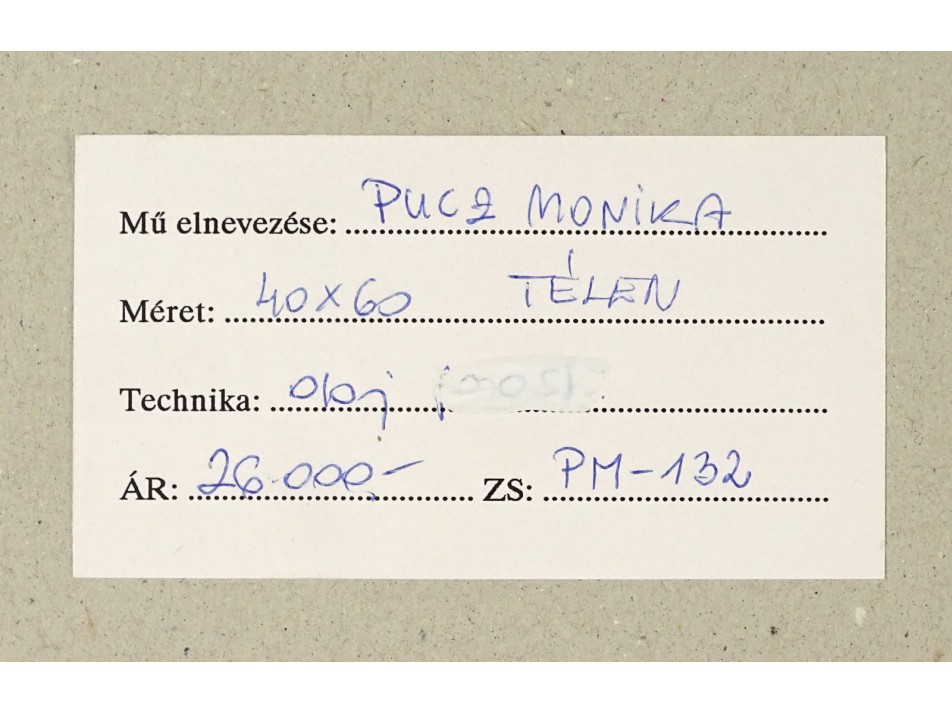 Mű elnevezése: PUCZ MONIKA
Méret: 40x60 TÉLEN
Technika:
ÁR: 26.000,- ZS: PM-132